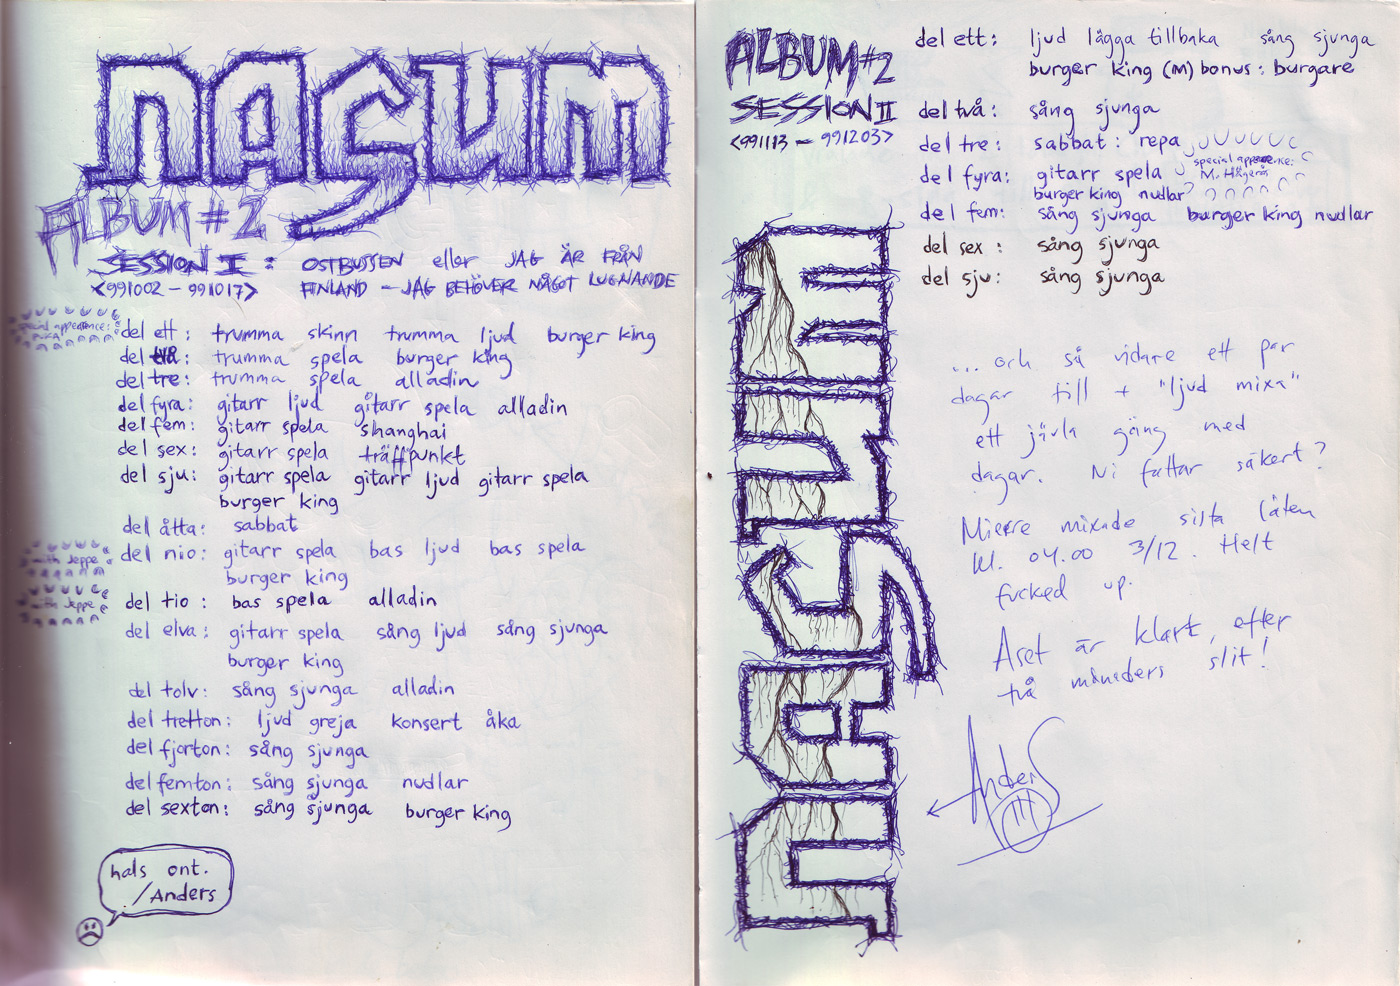 nasum
ALBUM #2
SESSION I : OSTBUSSEN eller JAG ÄR FRÅN
<991002 – 991017> FINLAND – JAG BEHÖVER NÅGOT LUGNANDE
special appearence:
del ett: trumma skinn trumma ljud burger king
del två: trumma spela burger king
del tre: trumma spela alladin
del fyra: gitarr ljud gitarr spela alladin
del fem: gitarr spela shanghai
del sex: gitarr spela träffpunkt
del sju: gitarr spela gitarr ljud gitarr spela
burger king
del åtta: sabbat
del nio: gitarr spela bas ljud bas spela
with Jeppe
burger king
del tio: bas spela alladin
with Jeppe
del elva: gitarr spela sång ljud sång sjunga
burger king
del tolv: sång sjunga alladin
del tretton: ljud greja konsert åka
del fjorton: sång sjunga
del femton: sång sjunga nudlar
del sexton: sång sjunga burger king
hals ont.
/Anders
ALBUM #2
SESSION II
<991113 – 991203>
del ett: ljud lägga tillbaka sång sjunga
burger king (M) bonus: burgare
del två: sång sjunga
del tre: sabbat: repa
special appearence:
M. Hågerås
del fyra: gitarr spela
burger king nudlar
del fem: sång sjunga burger king nudlar
del sex: sång sjunga
del sju: sång sjunga
nasum
...och så vidare ett par
dagar till + "ljud mixa"
ett jävla gäng med
dagar. Ni fattar säkert?
Mieszko mixade sista låten
kl. 04.00 3/12. Helt
fucked up.
Aset är klart, efter
två månaders slit!
Anders